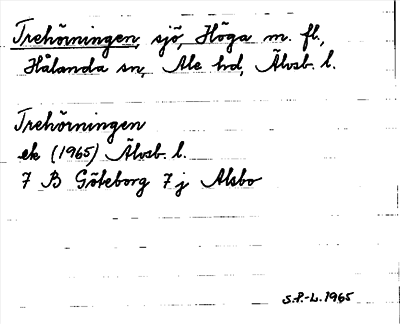 Trehörningen, sjö, Höga m. fl.,
Hålanda sn, Ale hd, Älvsb. l.
Trehörningen
ek (1965) Älvsb. l.
7 B Göteborg 7j Alsbo
S.P.-L. 1965